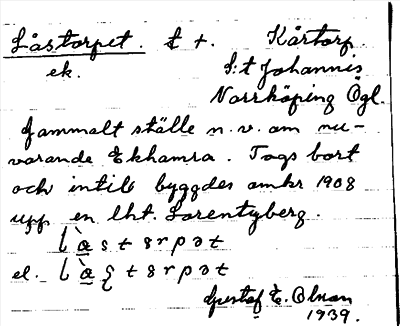 Låstorpet. t +. Kårtorp
ek. S:t Johannis
Norrköping Ögl.
Gammalt ställe n.v. om nu-
varande Ekhamra. Togs bort
och intill byggdes omkr 1908
upp en lht. Lorentzberg.
el.
Gustaf E. Olson
1939.